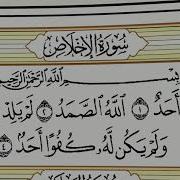 سُورَةُ الإِخْلَاصِ
بِسْمِ ٱللَّهِ ٱلرَّحْمَٰنِ ٱلرَّحِيمِ
أَحَدٌ ١ ٱللَّهُ ٱلصَّمَدُ ٢ لَمْ يَلِدْ
وَلَمْ يَكُن لَّهُۥ كُفُوًا أَحَدٌۢ ٤